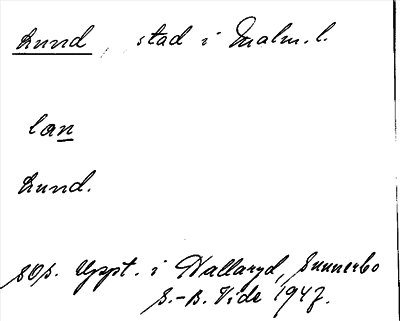 Lund, stad i Malm. l.
lan
Lund.
sOp. Uppt. i Hallaryd, Sunnerbo
S.-B. Vide 1947.